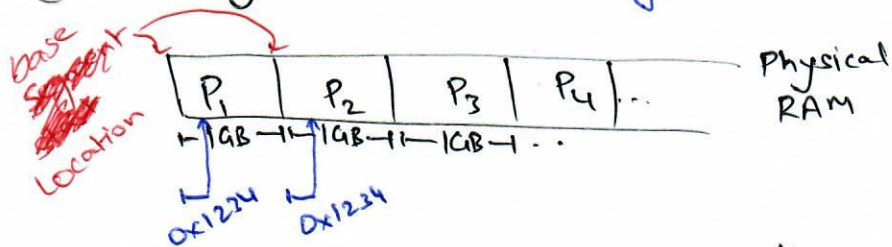 base
location
P1 P2 P3 P4 ...
Physical
RAM
1GB 1GB 1GB ..
0x1234 0x1234